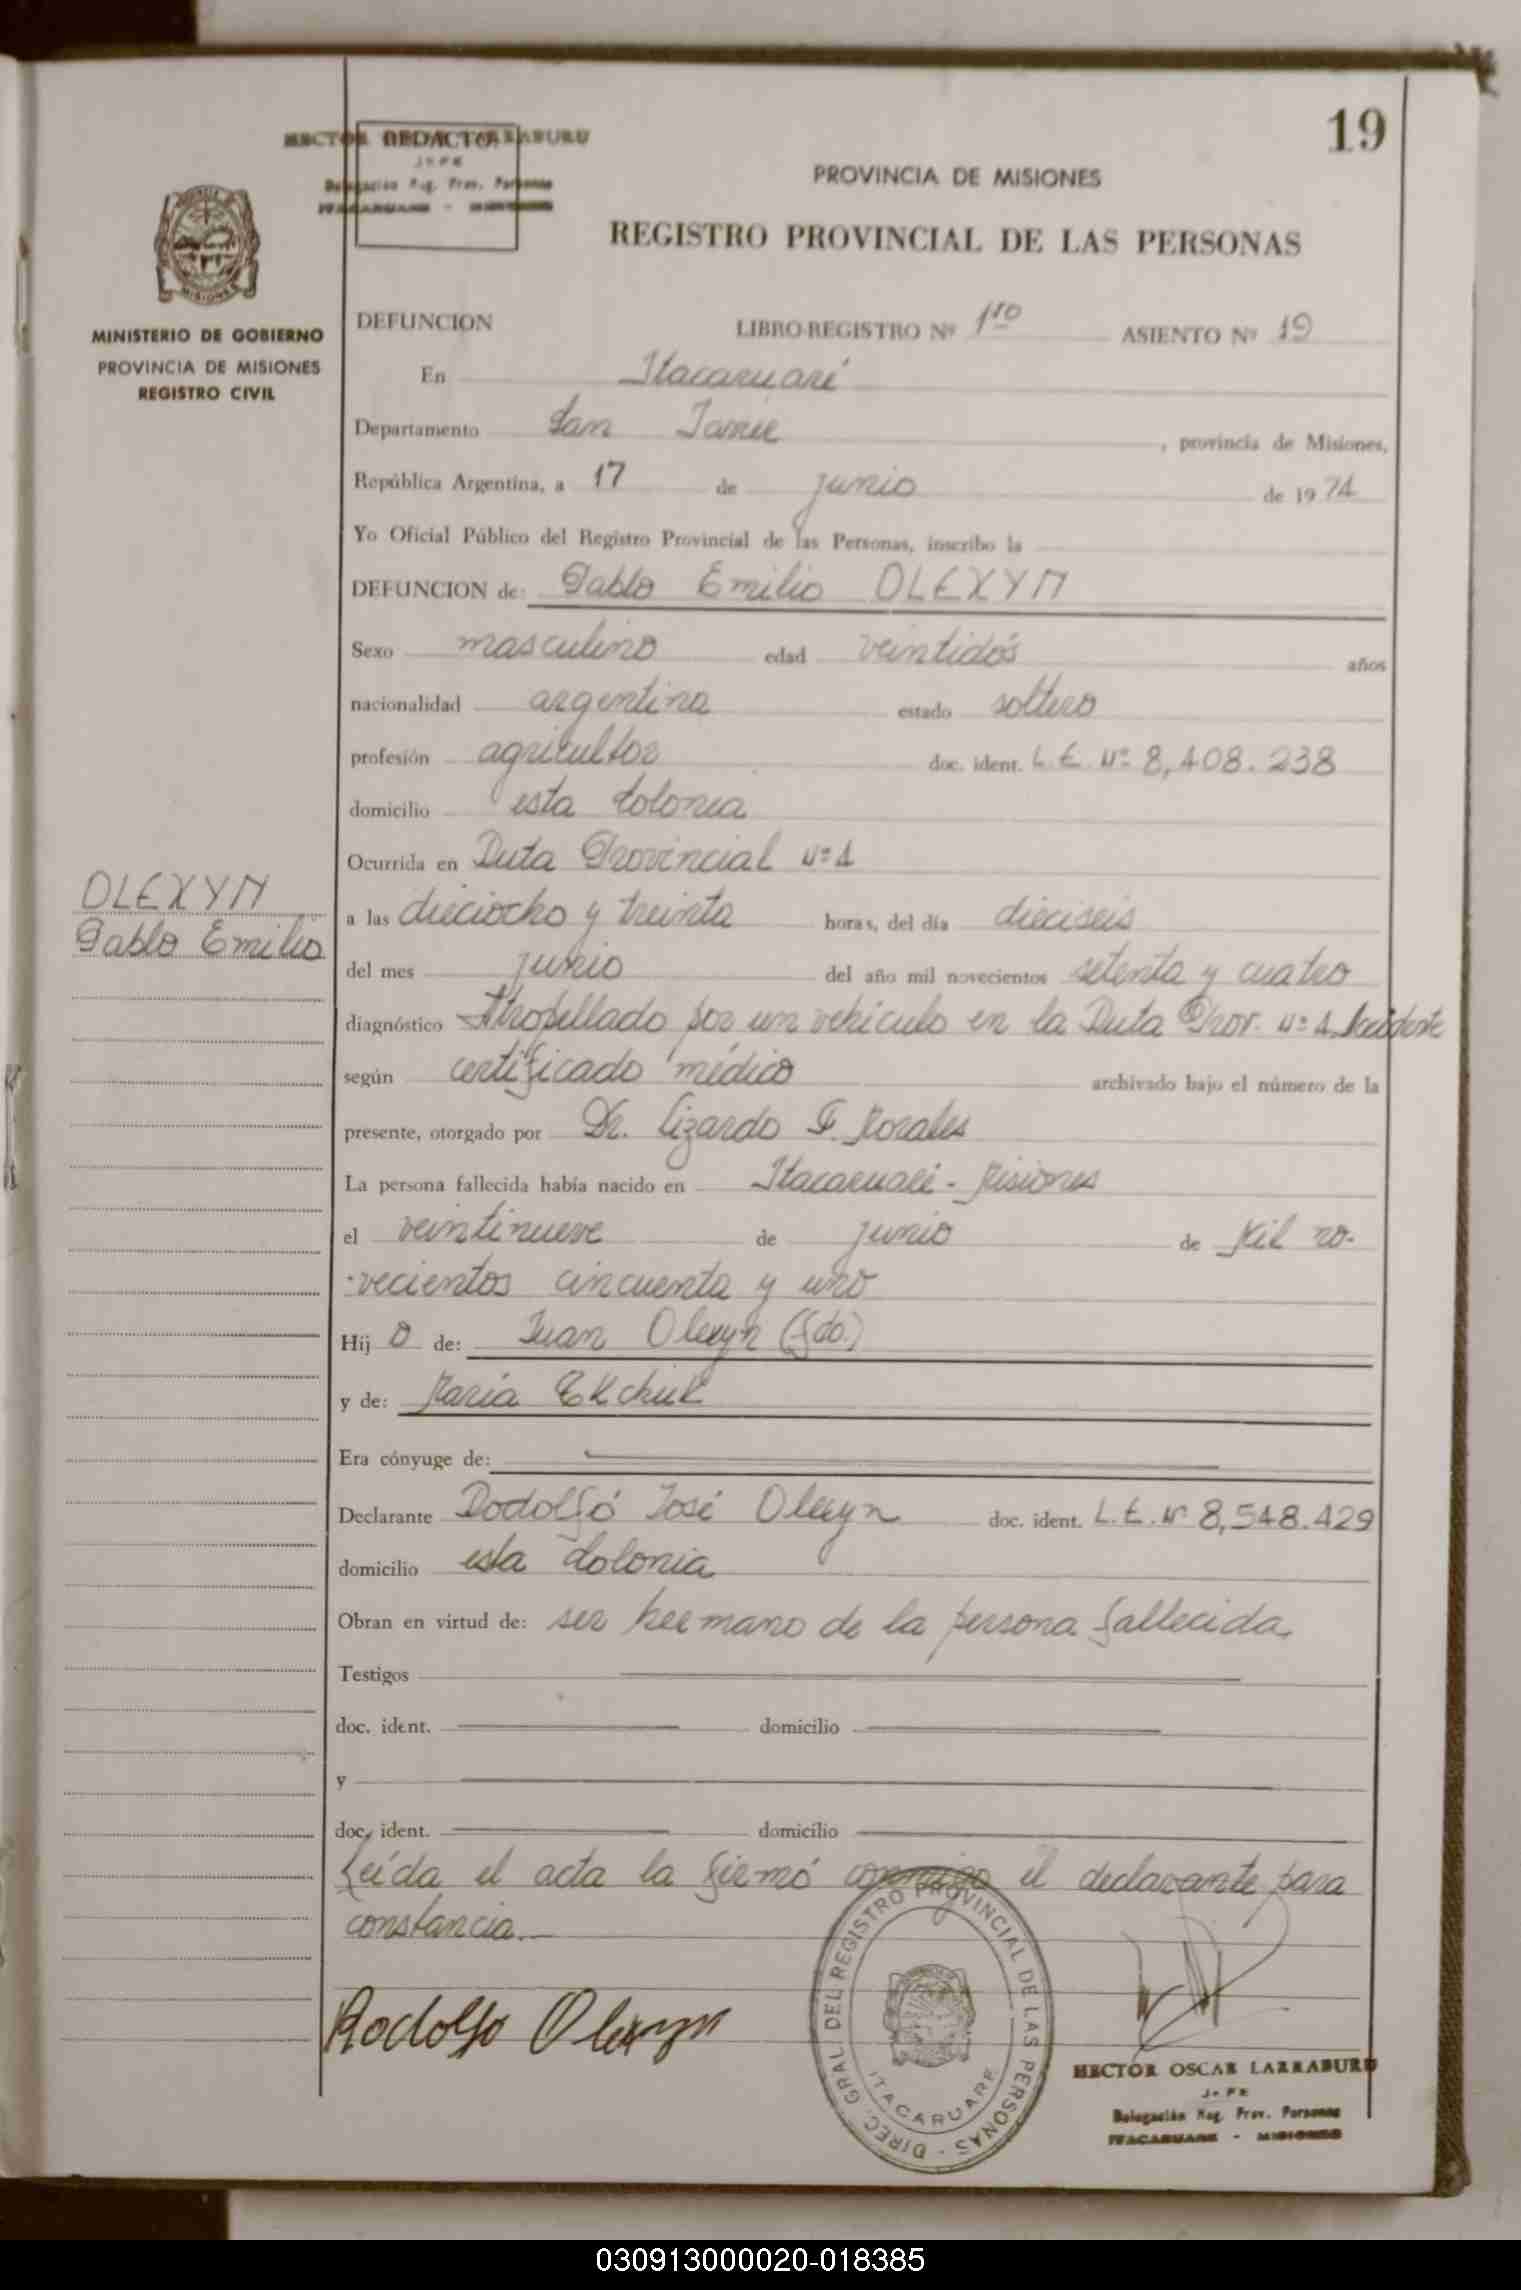 19
HECTOR OSCAR LARRABURU
REDACTO:
JEFE
Delegación Reg. Prov. Personas
ITACARUARE - MISIONES
PROVINCIA DE MISIONES
REGISTRO PROVINCIAL DE LAS PERSONAS
MISIONES
MINISTERIO DE GOBIERNO
PROVINCIA DE MISIONES
REGISTRO CIVIL
DEFUNCION LIBRO-REGISTRO Nº 1ro ASIENTO Nº 19
En Itacaruaré
Departamento San Javier, provincia de Misiones,
República Argentina, a 17 de junio de 1974
Yo Oficial Público del Registro Provincial de las Personas, inscribo la
DEFUNCION de: Pablo Emilio OLEXYN
Sexo masculino edad veintidós años
nacionalidad argentina estado soltero
profesión agricultor doc. ident. L.E. Nº 8,408.238
domicilio esta Colonia
Ocurrida en Ruta Provincial Nº 1
OLEXYN
Pablo Emilio
a las dieciocho y treinta horas, del día dieciseis
del mes junio del año mil novecientos setenta y cuatro
diagnóstico Atropellado por un vehículo en la Ruta Prov. Nº 1 Accidente
según certificado médico archivado bajo el número de la
presente, otorgado por Dr. Lizardo F. Morales
La persona fallecida había nacido en Itacaruaré - Misiones
el veintinueve de junio de Mil no-
-vecientos cincuenta y uno
Hijo de: Juan Olexyn (fdo.)
y de: María
Era cónyuge de:
Declarante Rodolfo José Olexyn doc. ident. L.E. Nº 8,548.429
domicilio esta Colonia
Obran en virtud de: ser hermano de la persona fallecida.
Testigos
doc. ident. domicilio
y
doc. ident. domicilio
Leída el acta la firmó conmigo el declarante para
constancia.-
Rodolfo Olexyn
DIREC. GRAL. DEL REGISTRO PROVINCIAL DE LAS PERSONAS -
ITACARUARE
HECTOR OSCAR LARRABURU
JEFE
Delegación Reg. Prov. Personas
ITACARUARE - MISIONES
030913000020-018385